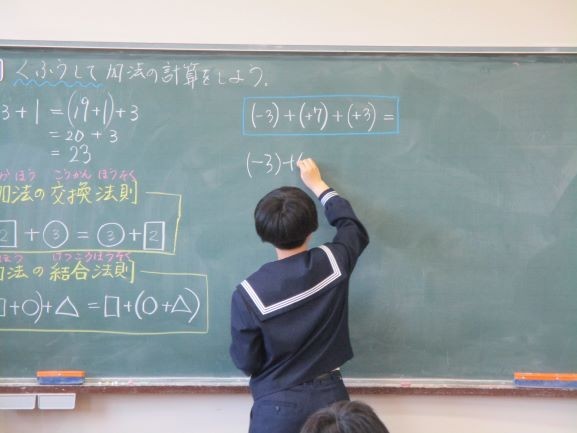 くふうして 加法の計算をしよう。
3+1=(19+1)+3
=20+3
=23
ほう こうかん ほうそく
加法の交換法則
2+③=③+2
ほう けつごうほうそく
加法の結合法則
□+○)+△=□+(○+△)
(-3)+(+7)+(+3)=
(-3)+(